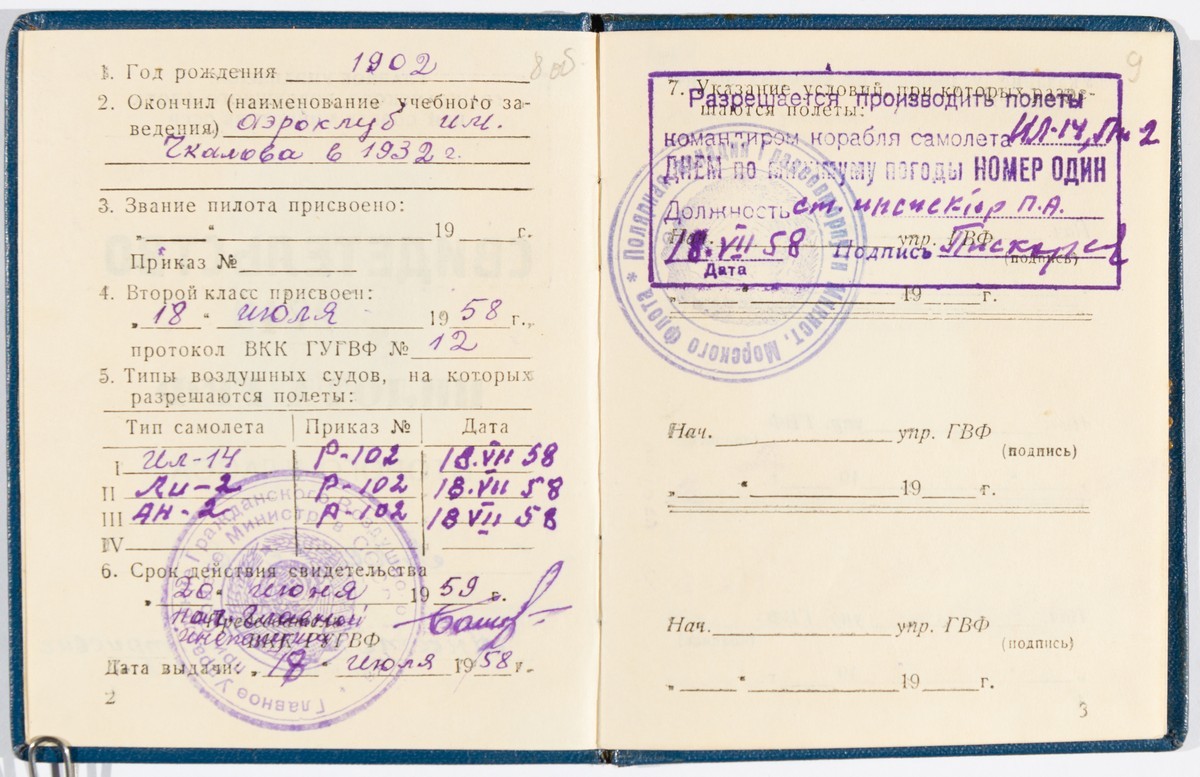 8 об.
1. Год рождения 1902
2. Окончил (наименование учебного за-
ведения) аэроклуб им.
Чкалова в 1932 г.
3. Звание пилота присвоено:
„ “ 19 г.
Приказ №
4. Второй класс присвоен:
„18“ июля 1958 г.
протокол ВКК ГУГВФ № 12
5. Типы воздушных судов, на которых
разрешаются полеты:
Тип самолета Приказ № Дата
I Ил-14 Р-102 18.VII 58
II Ли-2 Р-102 18.VII 58
III Ан-2 Р-102 18 VII 58
IV
6. Срок действия свидетельства
„20“ июня 1959 г.
нач. Главной
инспекции
ВКК ГУГВФ
Дата выдачи: „18“ июля 1958 г.
2
9
7. Указание условий, при которых разре-
шаются полеты:
Разрешается производить полеты
командиром корабля самолета ИЛ-14, Ли-2
ДНЁМ по минимуму погоды НОМЕР ОДИН
Должность ст. инспектор П.А.
Нач. упр. ГВФ
18.VII 58 Подпись
Дата (подпись)
„ “ 19 г.
Полярная Минист. Морского Флота
Нач. упр. ГВФ
(подпись)
„ “ 19 г.
Нач. упр. ГВФ
(подпись)
„ “ 19 г.
3